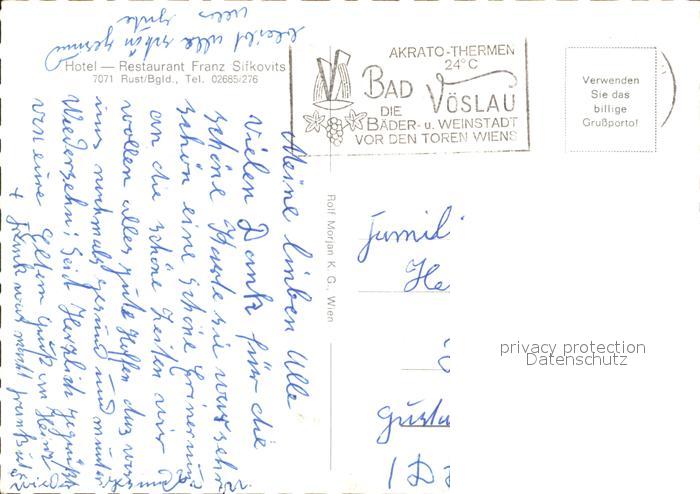 Hotel — Restaurant Franz Sifkovits
7071 Rust/Bgld., Tel. 02685/276
AKRATO-THERMEN
24°C
BAD
VÖSLAU
DIE
BÄDER- u. WEINSTADT
VOR DEN TOREN WIENS
Verwenden
Sie das
billige
Grußporto!
Rolf Morjan K. G., Wien
Meine lieben Alle
Vielen Dank für die
schöne Karte sie war sehr
schön eine schöne
an die schöne Zeiten wir
wollen alles gute hoffen das wir
uns nochmals gesund und munter
Wiedersehn! Seid Herzlich gegrüßt
von eure Eltern
bleibt alle schön gesund
alles gute
Famil
He
Gusta
privacy protection
Datenschutz